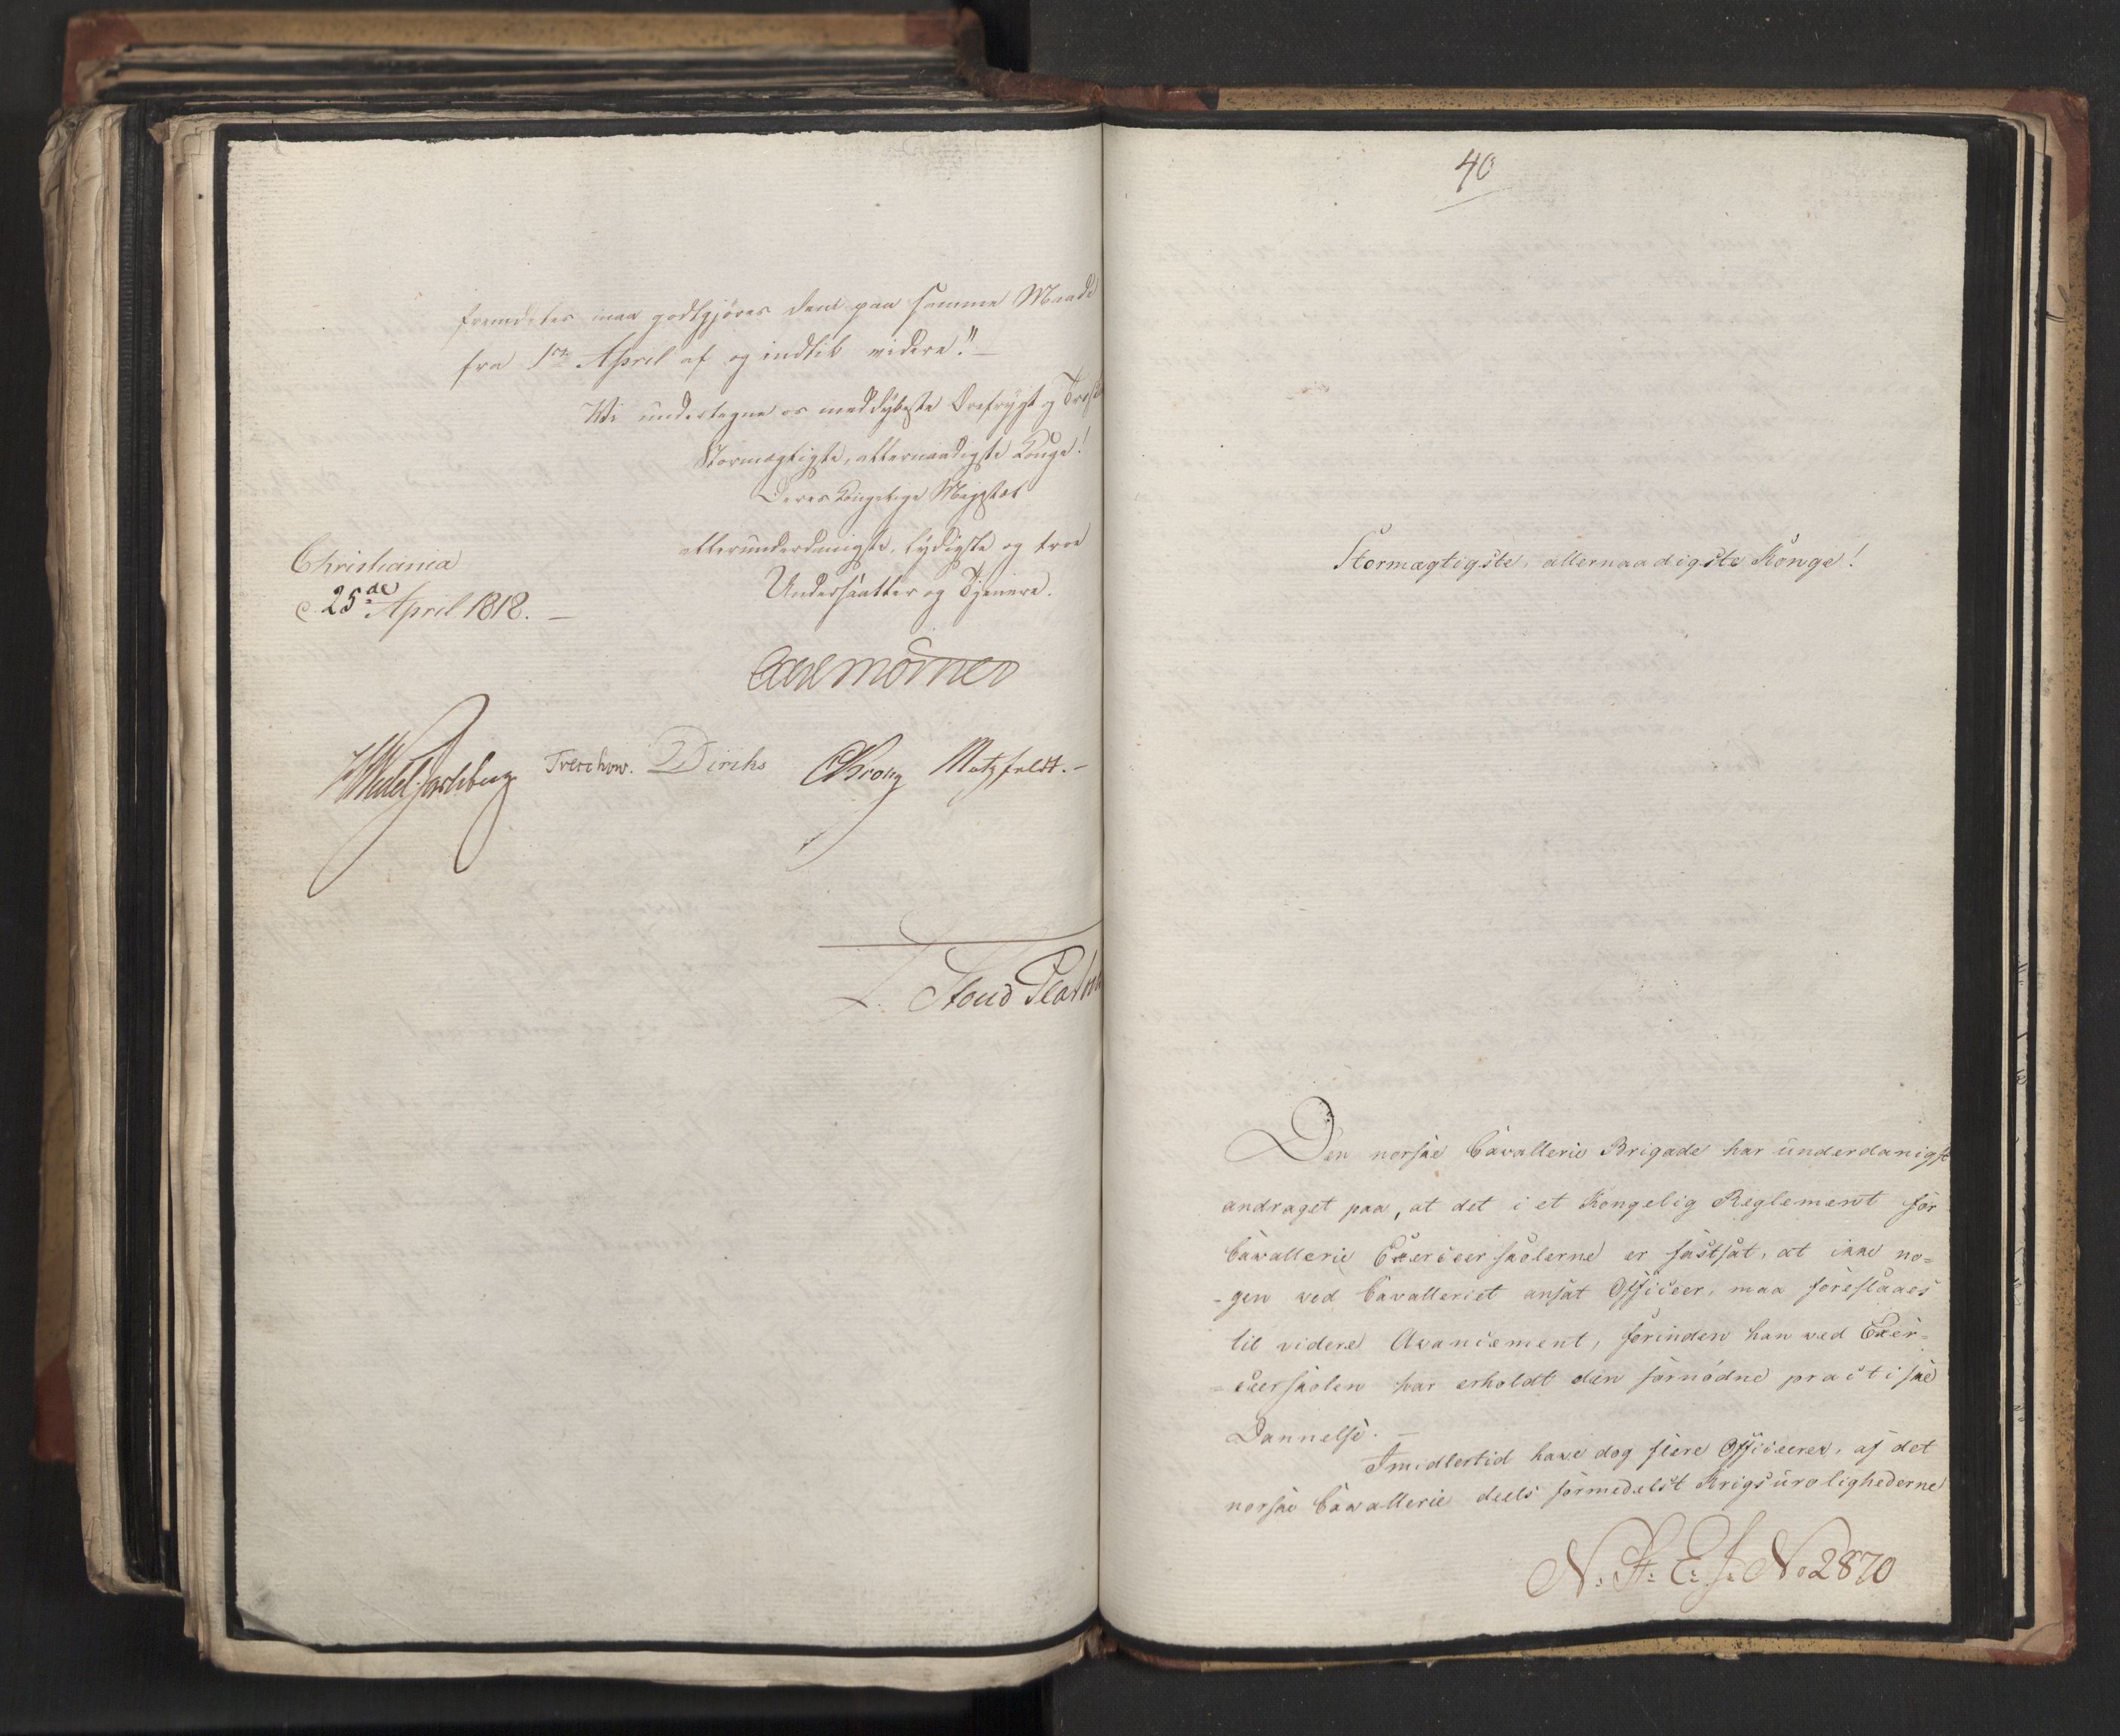 fremdeles maa godtgjöres dem paa samme Maade
fra 1ste April af og indtil videre."
Vi undertegne os med dybeste Ærefrygt og Troskab
Stormægtigste, allernaadigste Konge!
Deres Kongelige Majestæt
allerunderdanigste, lydigste og troe
Undersaatter og Tjenere.
Christiania
d. 25de April 1818.
Axel Mörner
HWedel Jarlsberg Treschow. Diriks CKrohg Motzfeldt.
L. Stoud Platou
40
Stormægtigste, allernaadigste Konge!
Den norske Cavallerie Brigade har underdanigst
andraget paa, at det i et Kongelig Reglement for
Cavallerie Exerceerskolerne er fastsat, at ikke no=
=gen ved Cavalleriet ansat Officeer, maa foreslaaes
til videre Avancement, forinden han ved Exer=
=ceerskolen har erholdt den fornødne practiske
Dannelse.
Imidlertid have dog flere Officierer, af det
norske Cavallerie deels formedelst Krigsurolighederne
N: St: E: J: No 2870